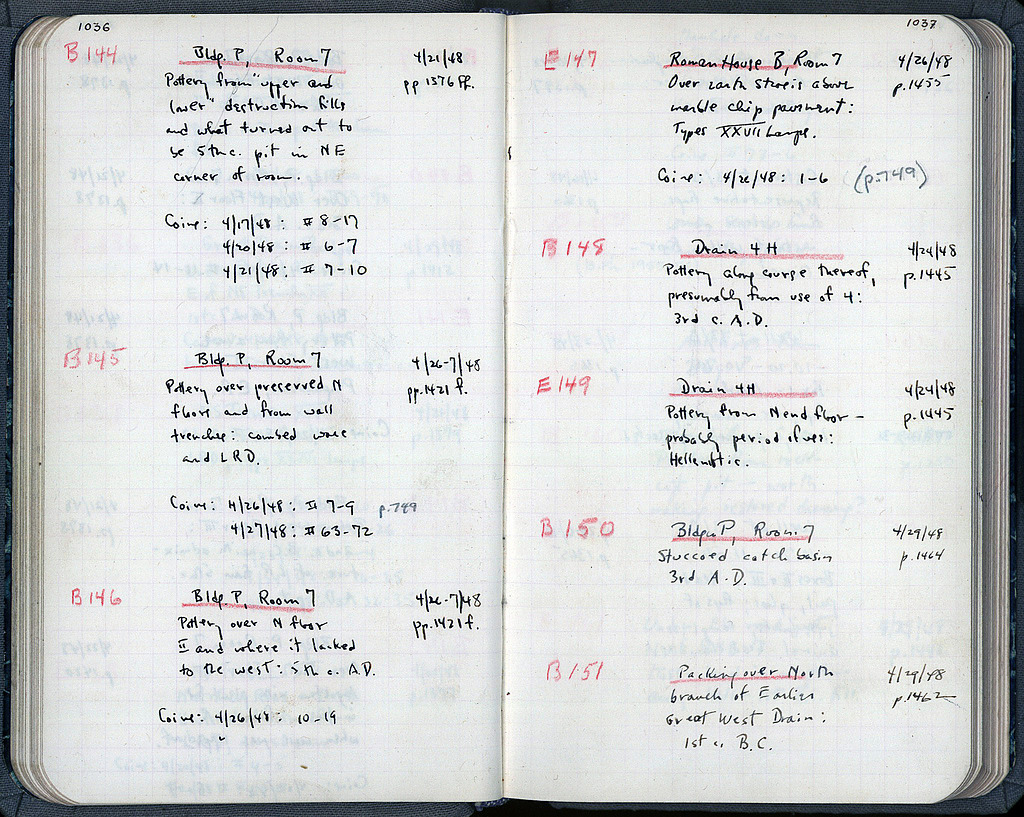 1036
B 144 Bldg. P, Room 7 4/21/48
Pottery from "upper and pp. 1376 ff.
lower" destruction fills
and what turned out to
be 5th c. pit in NE
corner of room.
Coins: 4/17/48: # 8-17
4/20/48: # 6-7
4/21/48: # 7-10
B 145 Bldg. P, Room 7 4/26-7/48
Pottery over preserved N pp. 1421 f.
floors and from wall
trenches: combed ware
and LRD.
Coins: 4/26/48: # 7-9 p. 749
4/27/48: # 63-72
B 146 Bldg P, Room 7 4/26-7/48
Pottery over N floor pp. 1421 f.
II and where it lacked
to the west: 5th c. A.D.
Coins: 4/26/48: 10-19
1037
E 147 Roman House B, Room 7 4/26/48
Over earth strosis above p. 1455
marble chip pavement:
Types XXVII lamps.
Coins: 4/26/48: 1-6 (p. 749)
B 148 Drain 4 H 4/24/48
Pottery along course thereof, p. 1445
presumably from use of 4:
3rd c. A.D.
E 149 Drain 4H 4/24/48
Pottery from N end floor - p. 1445
probably period of use:
Hellenistic.
B 150 Bldg. P, Room 7 4/29/48
Stuccoed catch basin p. 1464
3rd A.D.
B 151 Packing over North 4/29/48
branch of Earlier p. 1462
Great West Drain:
1st c. B.C.